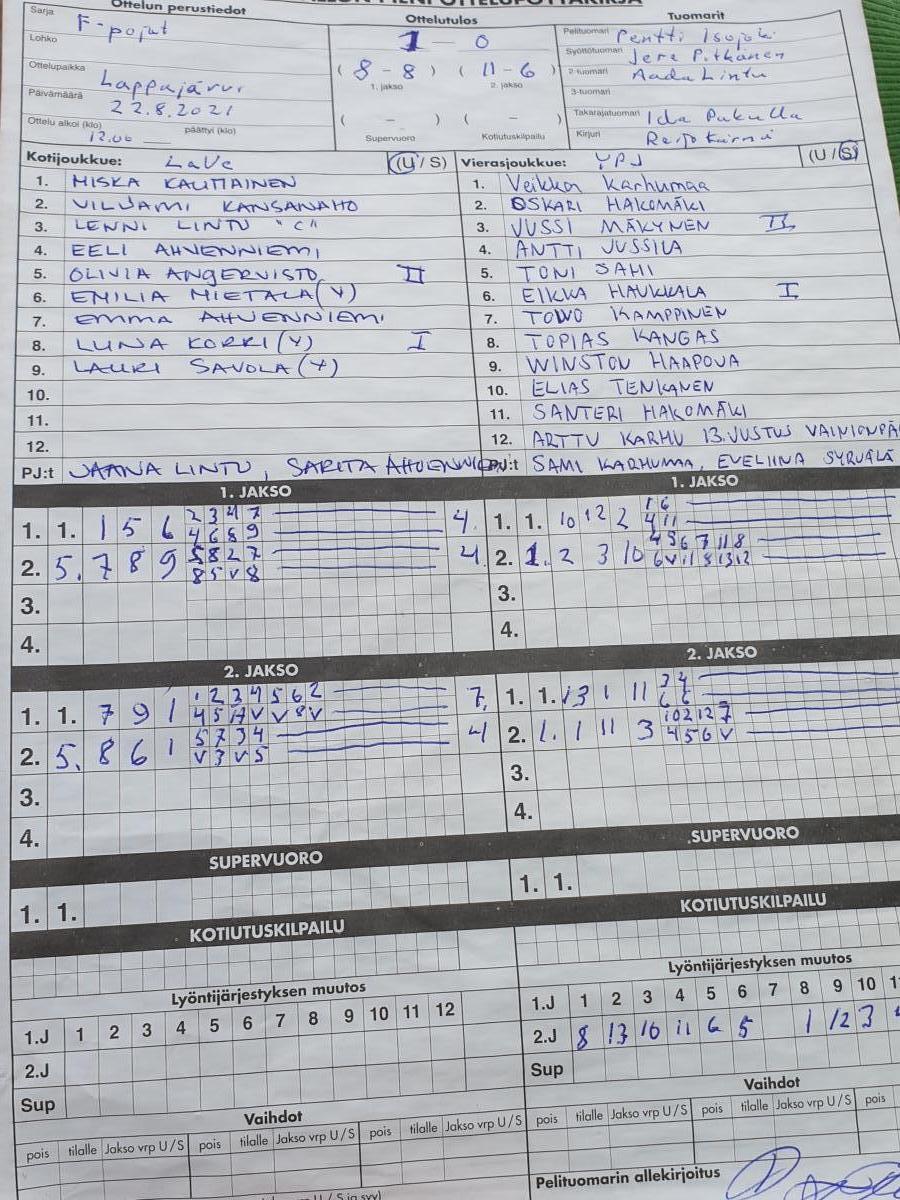 Ottelun perustiedot
Ottelutulos
Tuomarit
Sarja F-pojat
Lohko
Ottelupaikka Lappajärvi
Päivämäärä 22.8.2021
Ottelu alkoi (klo) 12.00 päättyi (klo)
1 - 0
( 8 - 8 ) ( 11 - 6 )
1. jakso 2. jakso
( - ) ( - )
Supervuoro Kotiutuskilpailu
Pelituomari Pentti Isojoki
Syöttötuomari Jere Pitkänen
2-tuomari Aada Lintu
3-tuomari
Takarajatuomari Ida Pakulla
Kirjuri
Kotijoukkue: LaVe (U / S) Vierasjoukkue: YPJ (U / S)
1. MISKA KAUTIAINEN 1. Veikka Karhumaa
2. VILJAMI KANSANAHO 2. OSKARI HAKOMÄKI
3. LENNI LINTU "C" 3. JUSSI MÄKYNEN II
4. EELI AHVENNIEMI 4. ANTTI JUSSILA
5. OLIVIA ANGERVISTO II 5. TONI SAHI
6. EMILIA MIETALA (Y) 6. EIKKA HAUKKALA I
7. EMMA AHVENNIEMI 7. TOIVO KAMPPINEN
8. LUNA KORRI (Y) I 8. TOPIAS KANGAS
9. LAURI SAVOLA (Y) 9. WINSTON HAAPOJA
10. 10. ELIAS TENKANEN
11. 11. SANTERI HAKOMÄKI
12. 12. ARTTU KARHU 13. JUSTUS
PJ:t JAANA LINTU, SARITA PJ:t SAMI KARHUMAA, EVELIINA SYRJÄLÄ
1. JAKSO 1. JAKSO
2 3 4 7 1 6
1. 1. 1 5 6 4 6 8 9 4. 1. 1. 10 12 2 4 11
5 8 2 7 4 5 6 7 11 8
2. 5. 7 8 9 8 5 V 8 4 2. 1. 2 3 10 6 V 11 8 13 12
3. 3.
4. 4.
2. JAKSO 2. JAKSO
1 2 3 4 5 6 2
1. 1. 7 9 1 7, 1. 1. 13 1 11
5 7 3 4 10 2 12 7
2. 5. 8 6 1 V 3 V 5 4 2. 1. 1 11 3 4 5 6 V
3. 3.
4. 4.
SUPERVUORO SUPERVUORO
1. 1. 1. 1.
KOTIUTUSKILPAILU KOTIUTUSKILPAILU
Lyöntijärjestyksen muutos Lyöntijärjestyksen muutos
1.J 1 2 3 4 5 6 7 8 9 10 11 12 1.J 1 2 3 4 5 6 7 8 9 10
2.J 2.J 8 13 10 11 6 5 1 12 3
Sup Sup
Vaihdot Vaihdot
pois tilalle Jakso vrp U / S pois tilalle Jakso vrp U / S pois tilalle Jakso vrp U / S pois tilalle Jakso vrp U / S pois tilalle Jakso vrp U / S pois
Pelituomarin allekirjoitus